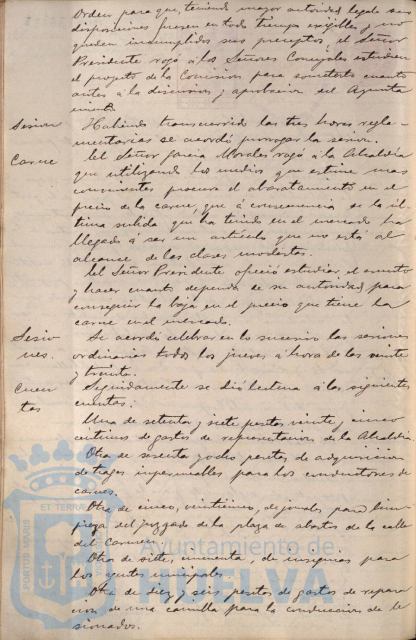 Orden para que, teniendo mayor autoridad legal sus
disposiciones fuesen en todo tiempo exigibles y no
queden incumplidos sus preceptos, el Señor
Presidente rogó a los Señores Concejales estudien
el proyecto de la Comision para someterlo cuanto
antes a la discusion y aprobacion del Ayunta
miento.
Sesion
Habiendo transcurrido las tres horas regla-
mentarias se acordó prorrogar la sesion.
Carne
El Señor Garcia Morales rogó a la Alcaldía
que utilizando los medios que estime mas
convenientes procure el abaratamiento en el
precio de la carne, que á consecuencia de la úl-
tima subida que ha tenido en el mercado ha
llegado á ser un artículo que no está al
alcance de las clases modestas.
El Señor Presidente ofreció estudiar el asunto
y hacer cuanto dependa de su autoridad para
conseguir la baja en el precio que tiene la
carne en el mercado.
Sesio
nes.
Se acordó celebrar en lo sucesivo las sesiones
ordinarias todos los jueves á hora de las veinte
y treinta.
Cuen
tas
Seguidamente se dió lectura a las siguientes
cuentas:
Una de setenta y siete pesetas veinte y cinco
centimos de gastos de representacion de la Alcaldia
Otra de sesenta y ocho pesetas de adquisicion
de trages impermeables para los conductores de
carnes.
Otra de cinco, veinticinco, de jornales para lim-
pieza del juzgado de la plaza de abastos de la calle
del Carmen.
Otra de siete, cincuenta, de insignias para
los agentes municipales
Otra de diez y seis pesetas de gastos de repara
cion de una camilla para la conduccion de le
sionados.
PORTUS MARIS
ET TERRAE
Ayuntamiento de
HUELVA